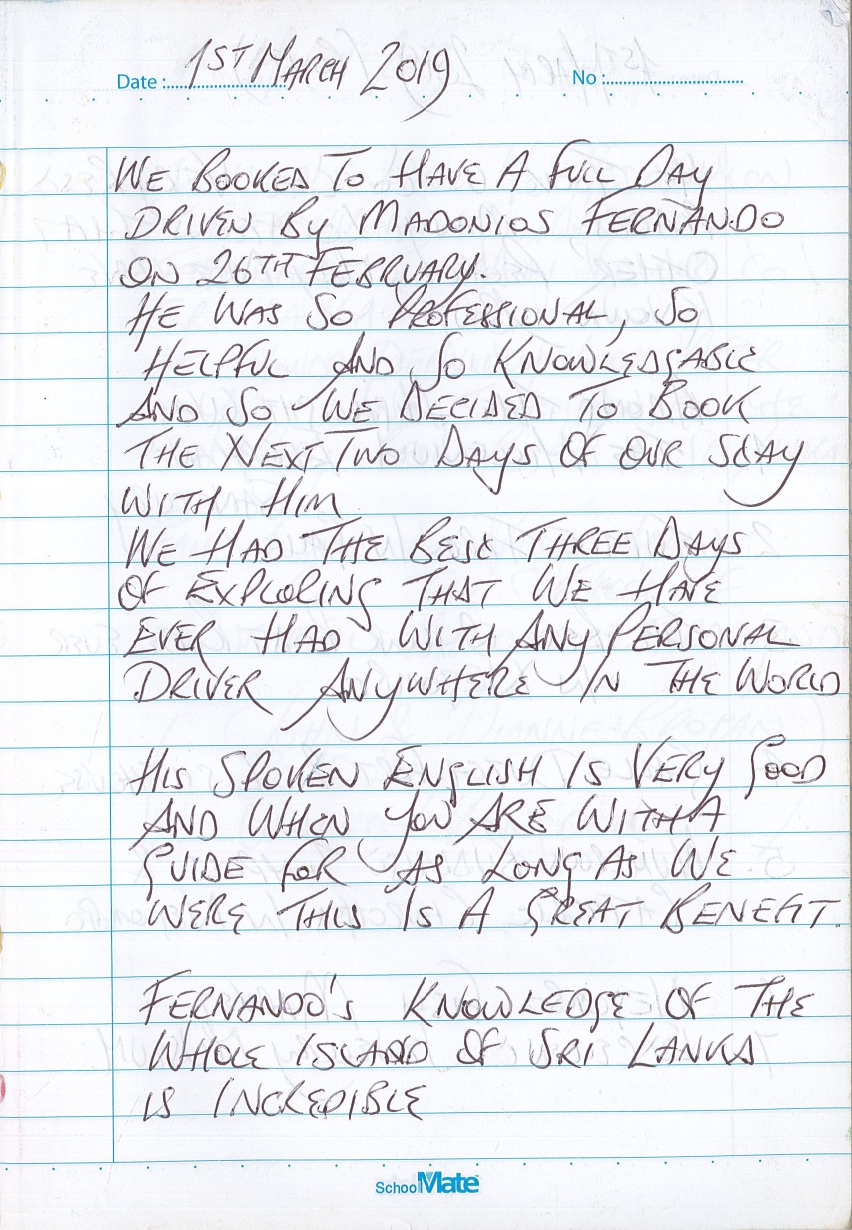 Date : 1ST MARCH 2019 No :
WE BOOKED TO HAVE A FULL DAY
DRIVEN By MADONIOS FERNANDO
ON 26TH FEBRUARY.
HE WAS SO PROFESSIONAL, SO
HELPFUL AND SO KNOWLEDGABLE
AND SO WE DECIDED TO BOOK
THE NEXT TWO DAYS OF OUR STAY
WITH HIM
WE HAD THE BEST THREE DAYS
OF EXPLORING THAT WE HAVE
EVER HAD WITH ANY PERSONAL
DRIVER ANYWHERE IN THE WORLD
HIS SPOKEN ENGLISH IS VERY GOOD
AND WHEN YOU ARE WITH A
GUIDE FOR AS LONG AS WE
WERE THIS IS A GREAT BENEFIT.
FERNANDO'S KNOWLEDGE OF THE
WHOLE ISLAND OF SRI LANKA
IS INCREDIBLE
SchoolMate